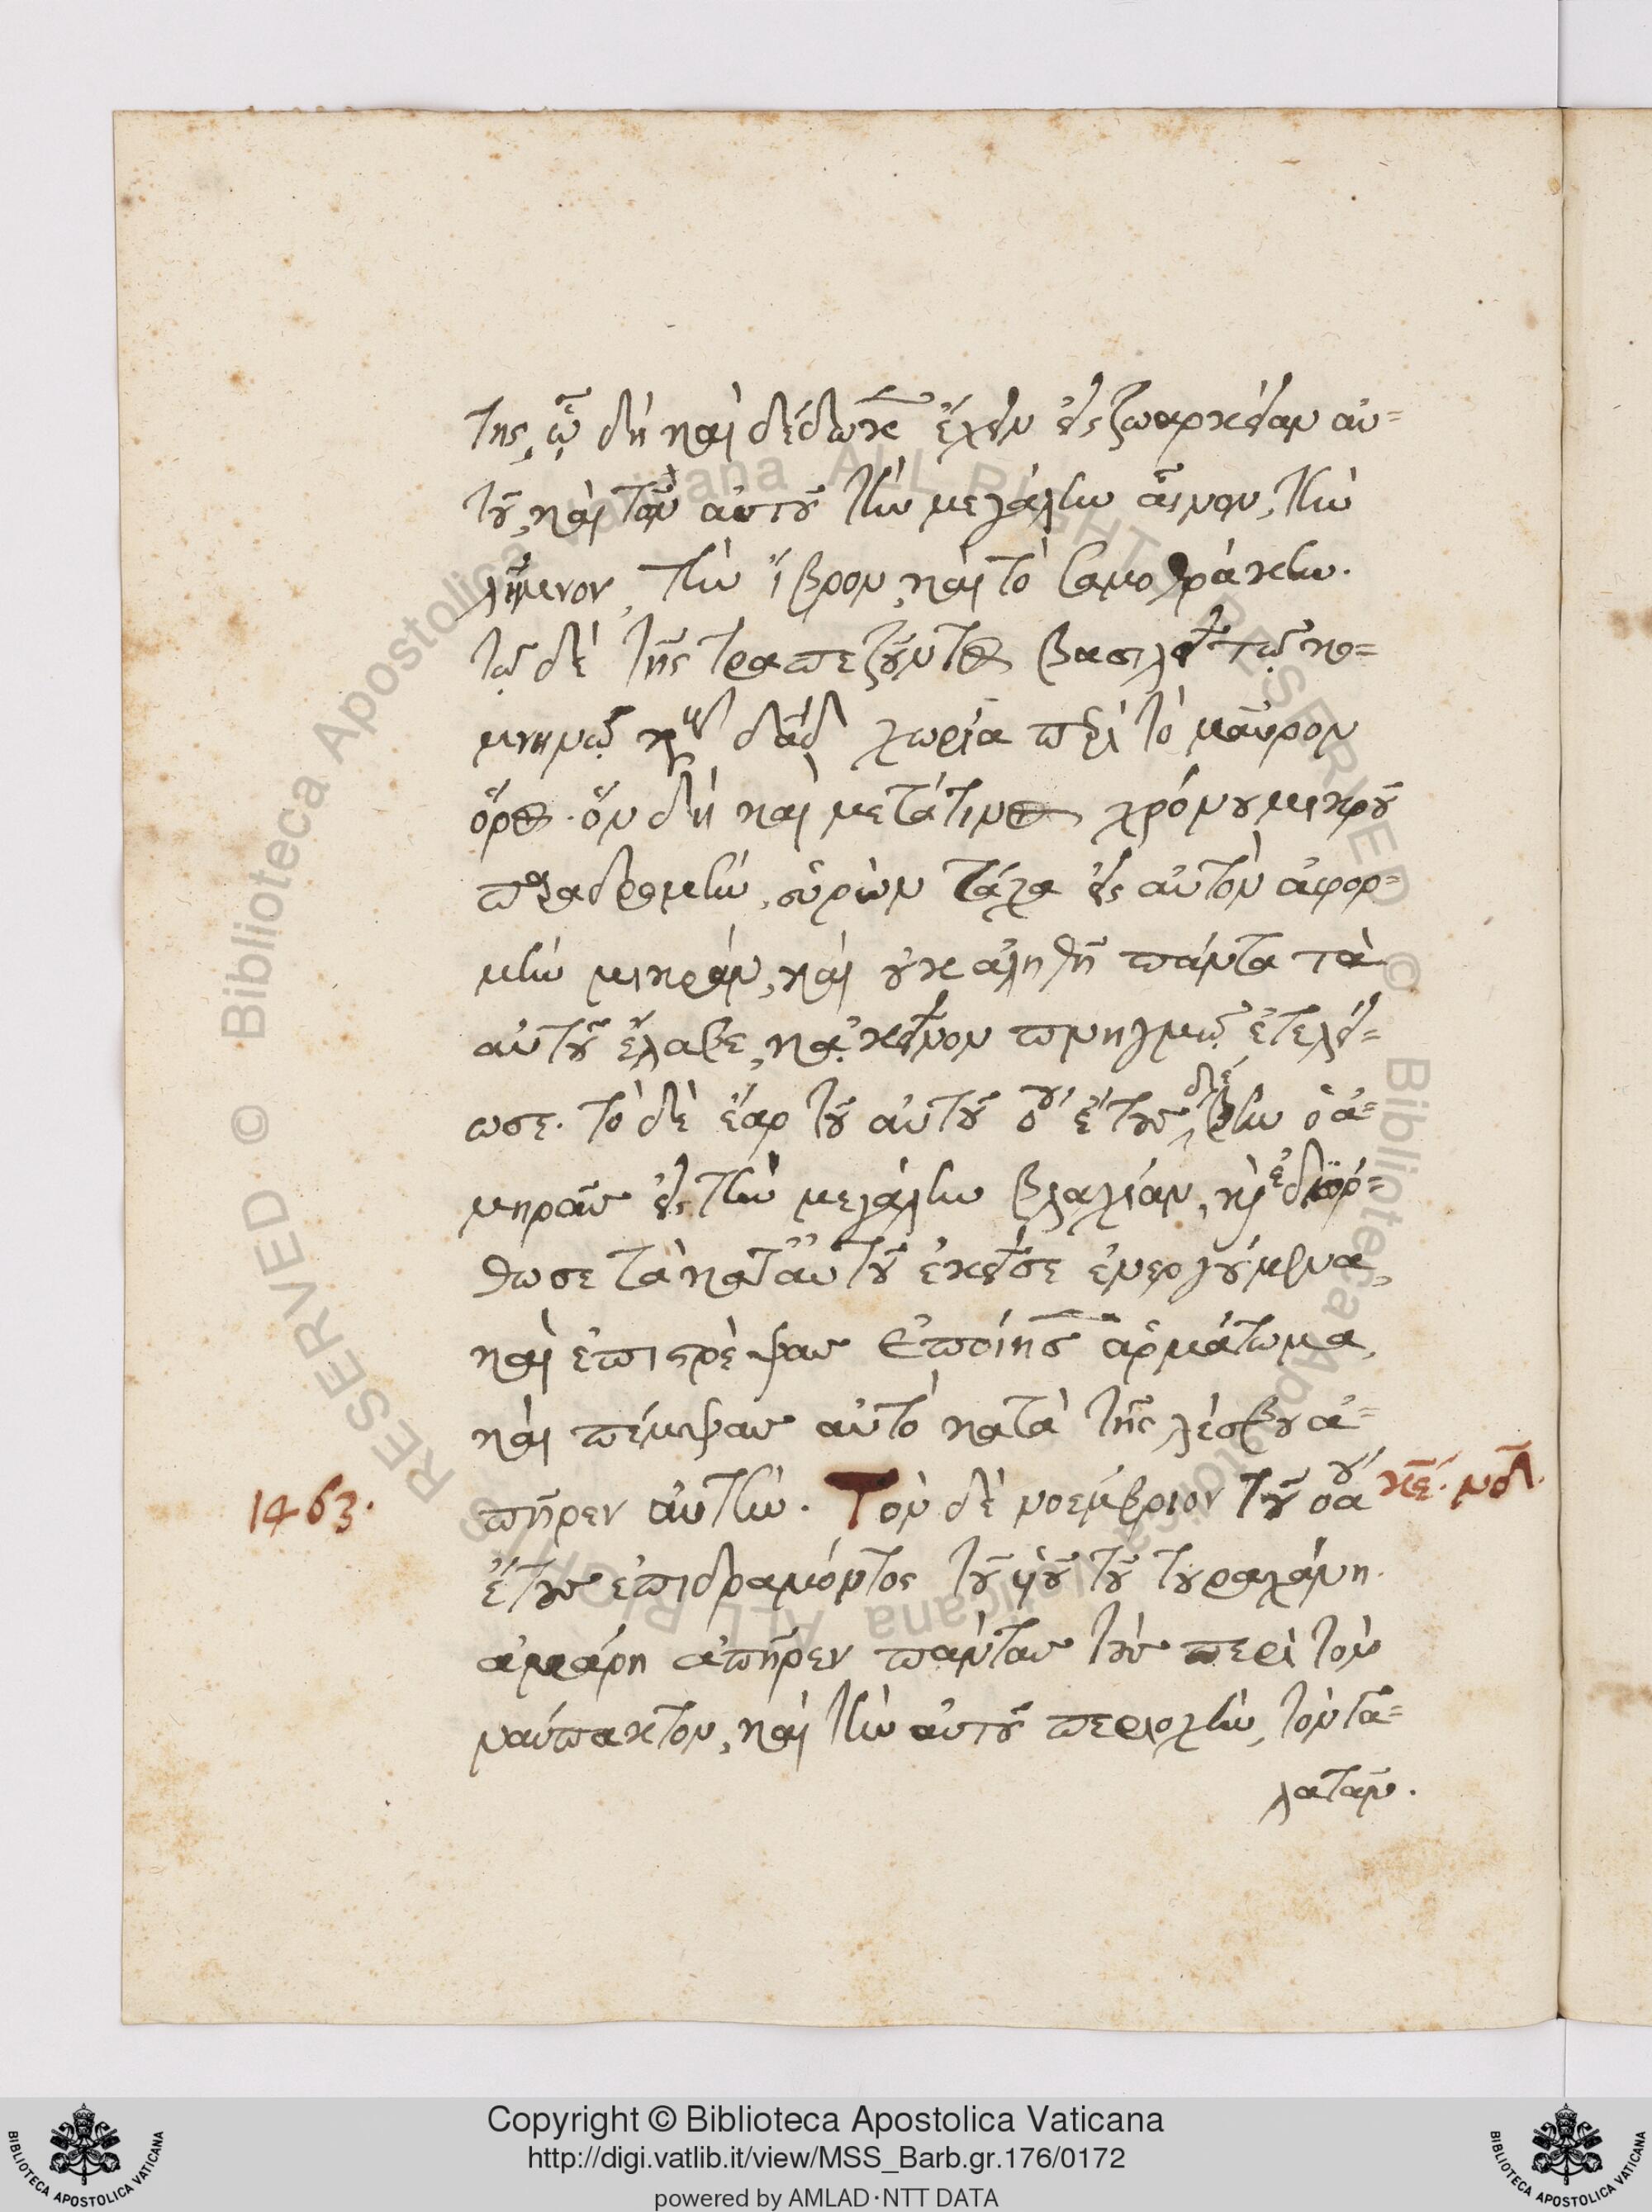 της, ᾧ δὴ καὶ δέδωκεν ἔχειν εἰς ζωάρκειαν αὐ=
τοῦ, καὶ τῶν αὐτοῦ τὴν μεγάλην αἶνον, τὴν
λῆμνον, τὴν ἴβρον, καὶ τὸ σαμοθράκην.
τῷ δὲ τῆς τραπεζοῦντος βασιλεῖ τῷ κο=
μνηνῷ κὺρ δαδ χωρία περὶ τὸ μαῦρον
ὄρος. ὃν δὴ καὶ μετά τινος χρόνου μικροῦ
παραδρομὴν, εὑρὼν τάχα εἰς αὐτὸν ἀφορ=
μὴν μικρὰν, καὶ οὐκ ἀληθῆ πάντα τὰ
αὐτοῦ ἔλαβε, κἀκεῖνον πνηγμῷ ἐτελεί=
ωσε. τὸ δὲ ἔαρ τοῦ αὐτοῦ οʹ ἔτους, διέβην ὁ ἀ=
μηρᾶς εἰς τὴν μεγάλην βλαχίαν, καὶ ἐδιόρ=
θωσε τὰ κατ' αὐτοῦ ἐκεῖσε ἐνεργούμενα,
καὶ ἐπιστρέψας ἐποίησεν ἀρμάτωμα,
καὶ πέμψας αὐτὸ κατὰ τῆς λέσβου ἀ=
πῆρεν αὐτήν. Τὸν δὲ νοέμβριον τοῦ οαου κε. ινδ.
1463.
ἔτους ἐπιδραμόντος τοῦ υἱοῦ τοῦ τουραχάνη
ἀμάρη ἀπῆρεν πάντας τοὺς περὶ τὸν
ναύπακτον, καὶ τὴν αὐτοῦ περιοχὴν, τὸν γα=
λατᾶν.
Copyright © Biblioteca Apostolica Vaticana
http://digi.vatlib.it/view/MSS_Barb.gr.176/0172
powered by AMLAD·NTT DATA
BIBLIOTECA APOSTOLICA VATICANA
BIBLIOTECA APOSTOLICA VATICANA
© Biblioteca Apostolica Vaticana ALL RIGHTS RESERVED
© Biblioteca Apostolica Vaticana ALL RIGHTS RESERVED